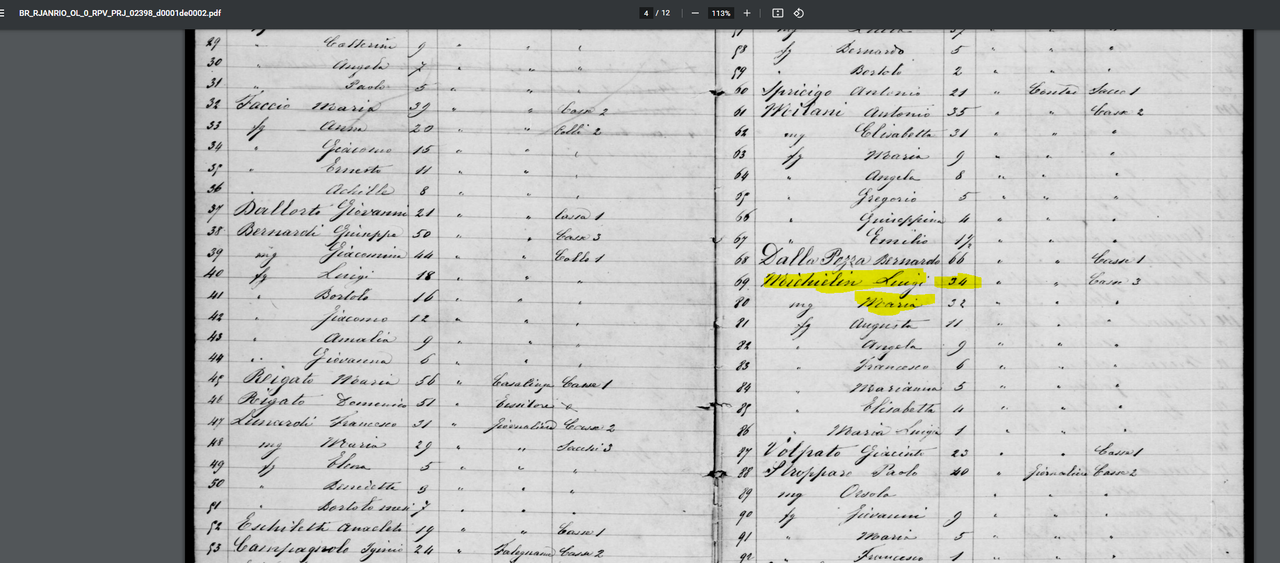 BR_RJANRIO_OL_0_RPV_PRJ_02398_d0001de0002.pdf
4 / 12
113%
29 " Catterina 9 " " "
30 " Angela 7 " " "
31 " Paolo 5 " " "
32 Faccio Maria 39 " " Casse 2
33 fg Anna 20 " " Colli 2
34 " Giacomo 15 " " "
35 " Ernesto 11 " " "
36 " Achille 8 " " "
37 Giovanni 21 " " Cassa 1
38 Bernardi Giuseppe 50 " " Casse 3
39 mg Giacomina 44 " " Collo 1
40 fg Luigi 18 " " "
41 " Bortolo 16 " " "
42 " Giacomo 12 " " "
43 " Amalia 9 " " "
44 " Giovanna 6 " " "
45 Rigato Maria 56 " Casalinga Casse 1
46 Rigato Domenico 51 " Tessitore
47 Lunardi Francesco 31 " Giornaliero Casse 2
48 mg Maria 29 " " Sacchi 3
49 fg Elena 5 " " "
50 " Benedetta 9 " " "
51 " Bortolo mesi 7 " " "
52 Anacleto 19 " " Cassa 1
53 Campagnolo Iginio 24 " Falegname Casse 2
57 mg
58 fg Bernardo 5 " " "
59 " Bortolo 2 " " "
60 Spricigo Antonio 21 " Sacco 1
61 Antonio 35 " " Casse 2
62 mg Elisabetta 31 " " "
63 fg Maria 9 " " "
64 " Angela 8 " " "
65 " Gregorio 5 " " "
66 " Giuseppina 4 " " "
67 " Emilio 1½ " " "
68 Dalla Pozza Bernardo 66 " " Cassa 1
69 Michielin Luigi 34 " " Casse 3
80 mg Maria 32 " " "
81 fg Augusta 11 " " "
82 " Angela 9 " " "
83 " Francesco 6 " " "
84 " Marianna 5 " " "
85 " Elisabetta 4 " " "
86 " Maria Luigia 1 " " "
87 Volpato Giacinto 23 " " Cassa 1
88 Stroppare Paolo 40 " Giornaliero Casse 2
89 mg Orsola " " "
90 fg Giovanni 9 " " "
91 " Maria 5 " " "
92 " Francesco 1 " " "